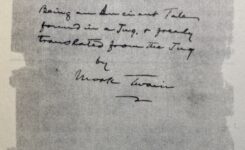 Being an Ancient Tale
found in a Jug, & freely
translated from the Jug
by
Mark Twain